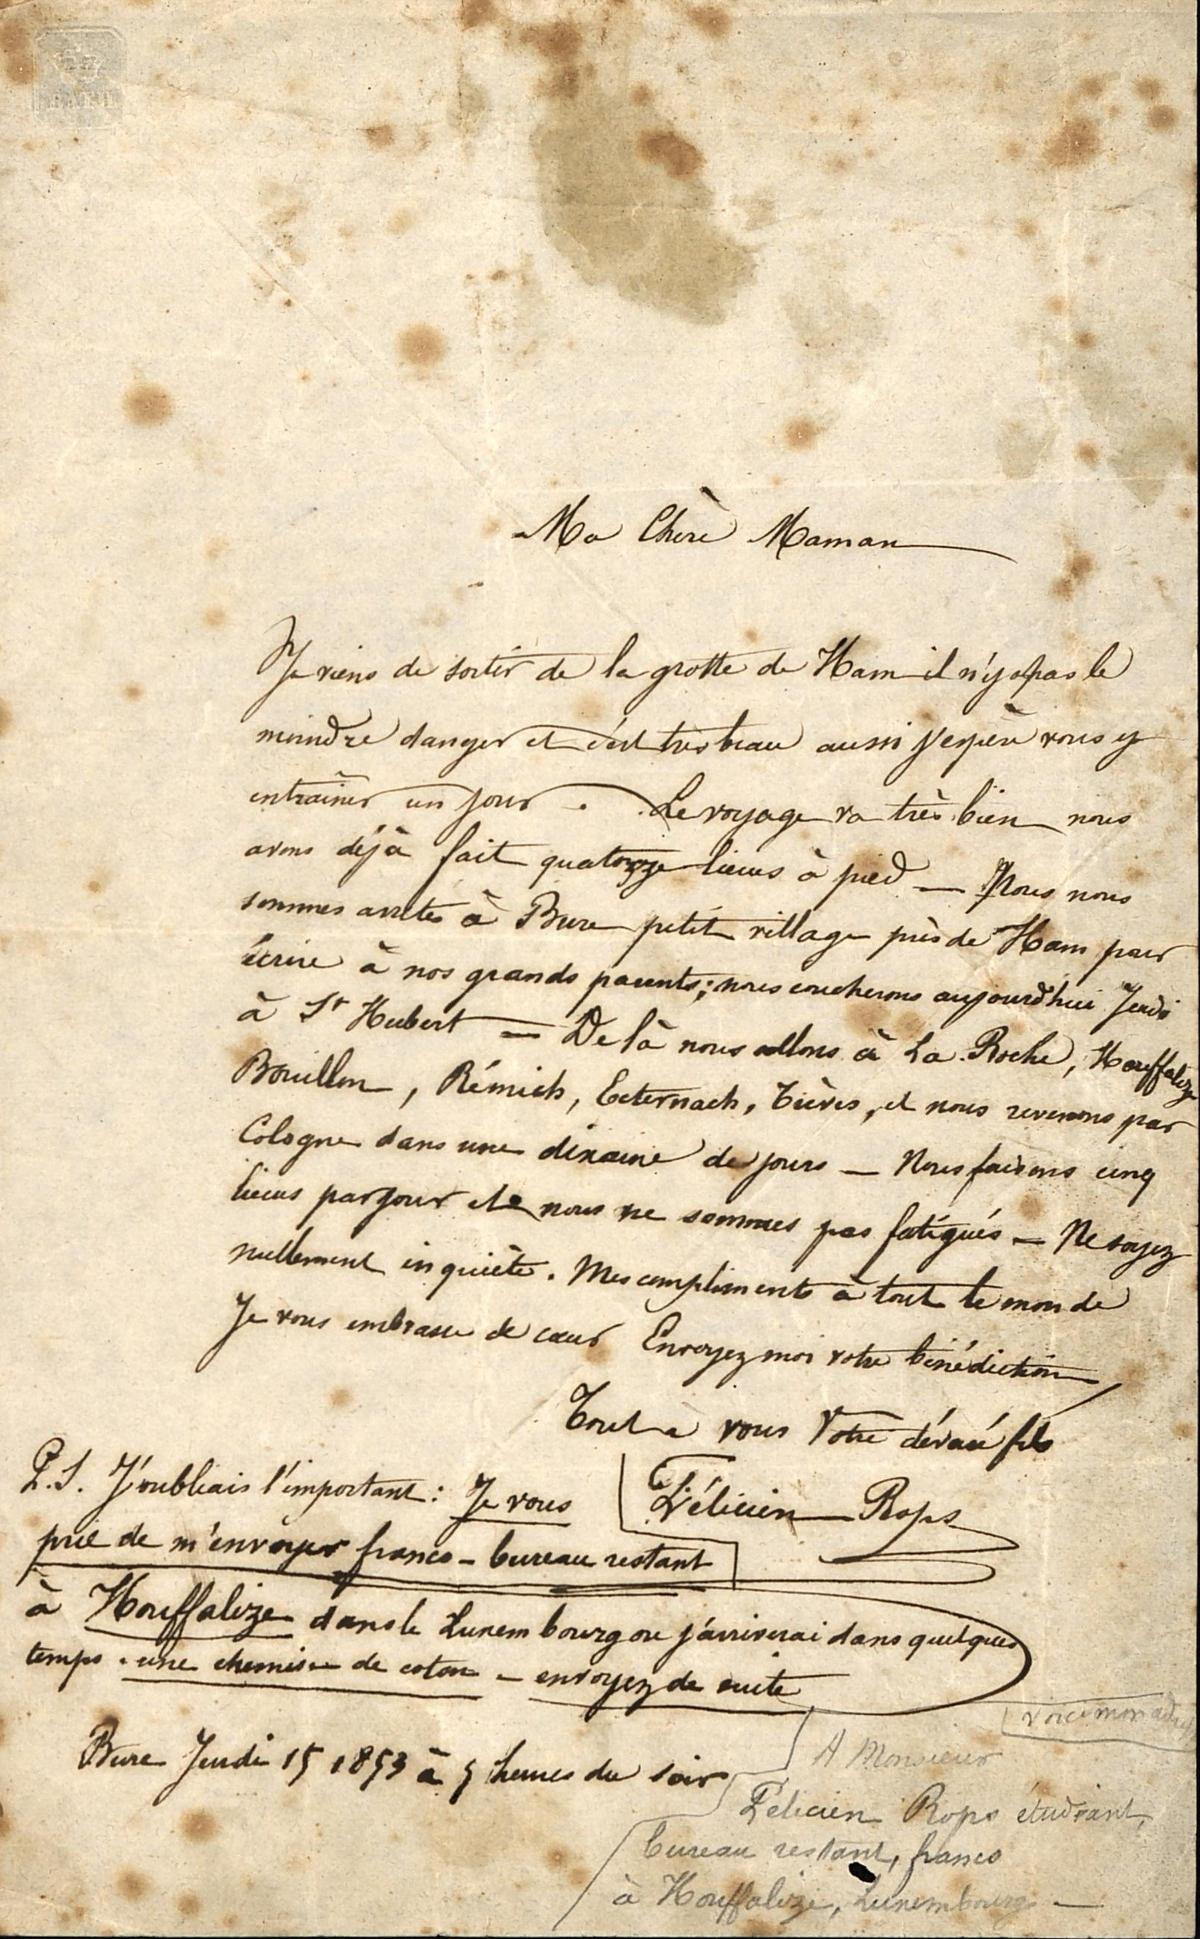 Ma Chère Maman
Je viens de sortir de la grotte de Ham il n'y a pas le
moindre danger et c'est très beau aussi j'espère vous y
entraîner un jour. Le voyage va très bien nous
avons déjà fait quatorze lieues à pied — Nous nous
sommes arretés à Bure petit village près de Ham pour
écrire à nos grands parents; nous coucherons aujourd'hui Jeudi
à St Hubert — De là nous allons à La Roche, Houffalize
Bouillon, Rémich, Echternach, Trèves, et nous revenons par
Cologne dans une dixaine de jours — Nous faisons cinq
lieues par jour et nous ne sommes pas fatigués — Ne soyez
nullement inquiète. Mes compliments à tout le monde
Je vous embrasse de cœur Envoyez moi votre bénédiction
Tout à vous Votre dévoué fils
Félicien Rops
P.S. J'oubliais l'important: Je vous
prie de m'envoyer franco – bureau restant
à Houffalize dans le Luxembourg où j'arriverai dans quelques
temps . une chemise de coton – envoyez de suite
Bure Jeudi 15 1853 à 5 heures du soir
voici mon
A Monsieur
Félicien Rops étudiant,
bureau restant, franco
à Houffalize, Luxembourg —